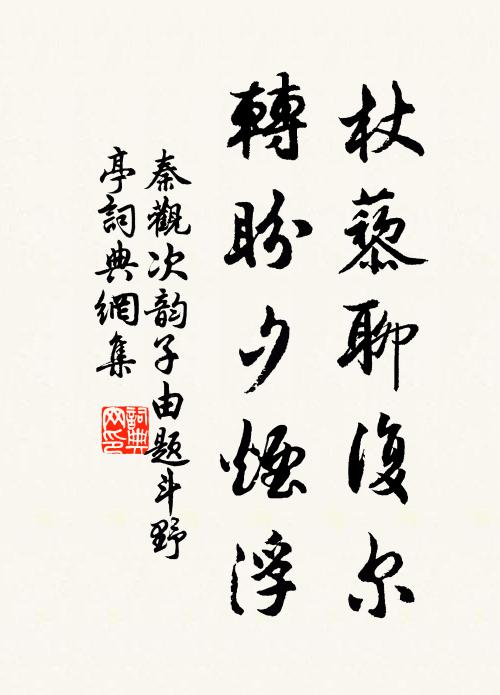 杖藜聊復尔
轉盼夕煙浮
秦觀次韵子由題斗野
亭詞典網集
詞典网印